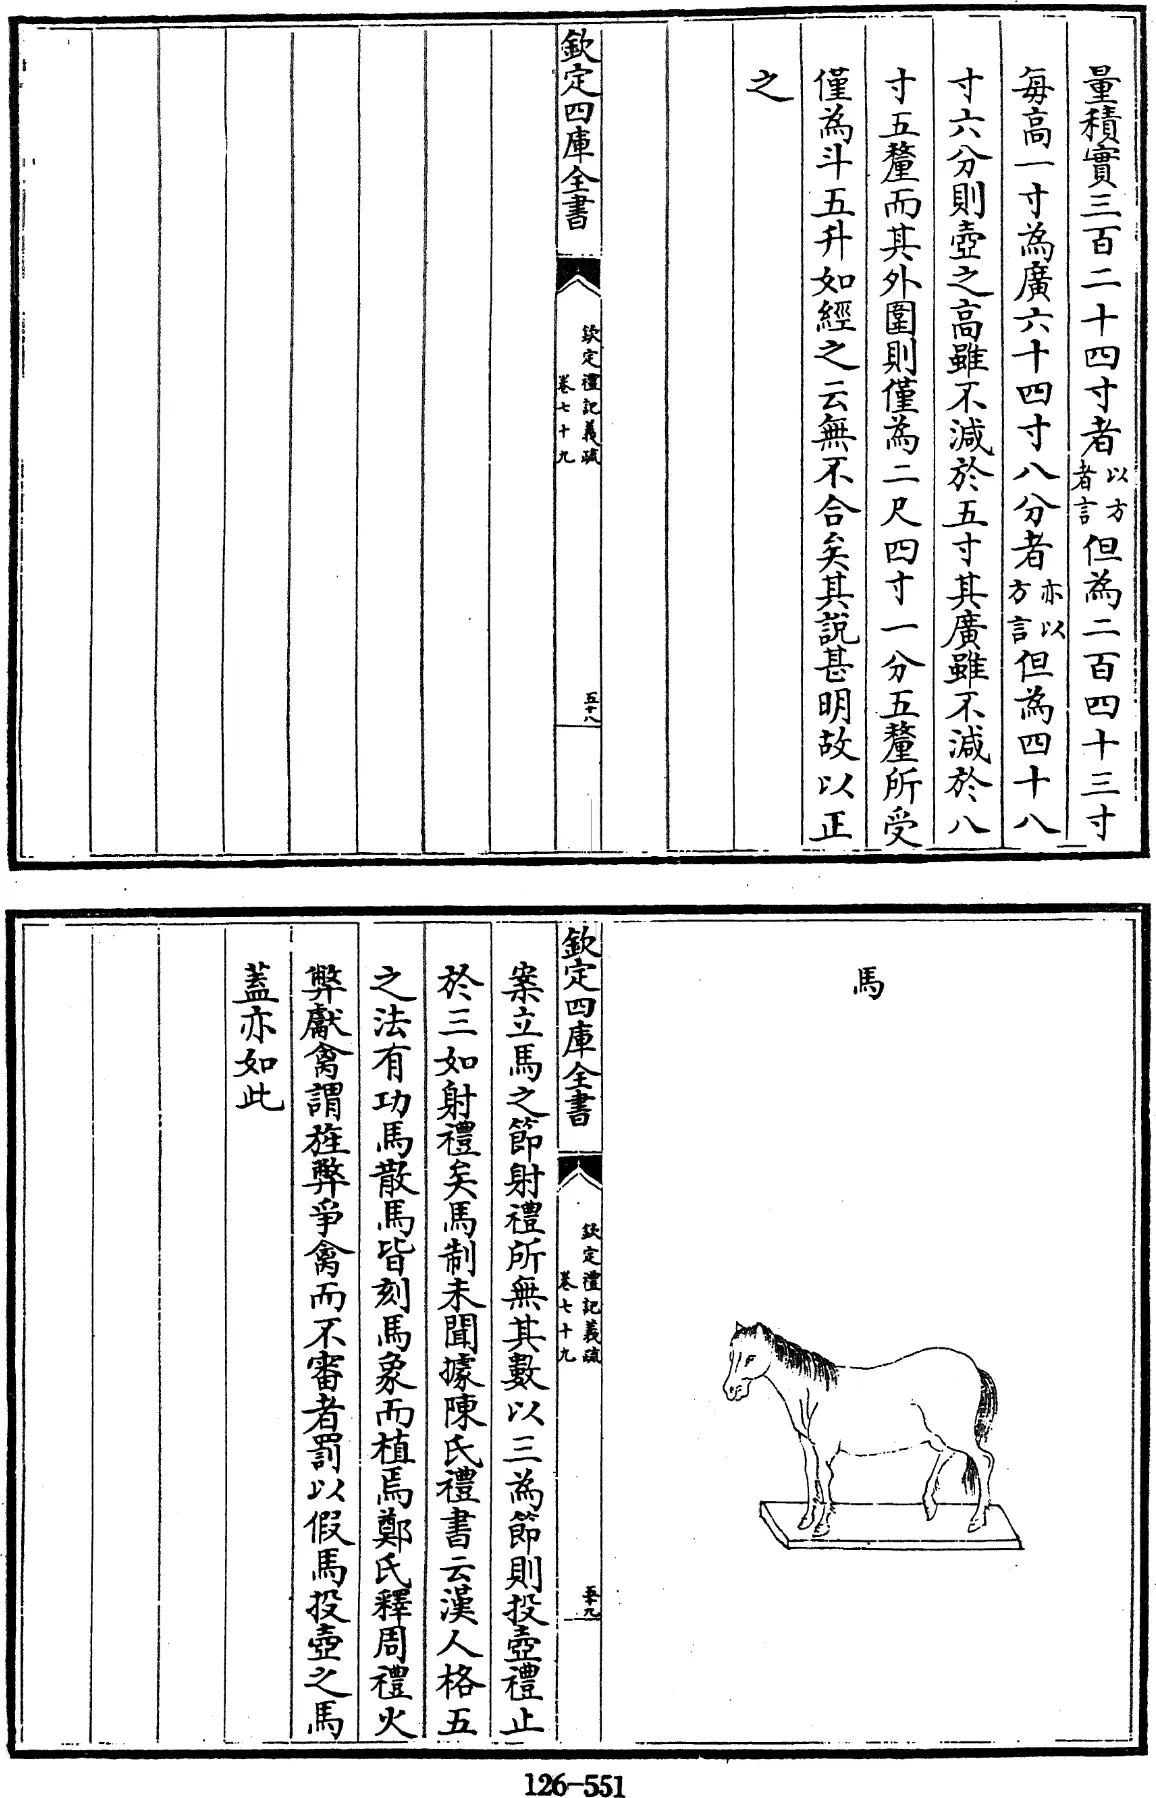 量積實三百二十四寸者以方者言但為二百四十三寸
每高一寸為廣六十四寸八分者亦以方言但為四十八
寸六分則壺之高雖不減於五寸其廣雖不減於八
寸五釐而其外圍則僅為二尺四寸一分五釐所受
僅為斗五升如經之云無不合矣其說甚明故以正
之
欽定四庫全書
欽定禮記義疏
卷七十九
五十八
馬
欽定四庫全書
欽定禮記義疏
卷七十九
五十九
案立馬之節射禮所無其數以三為節則投壺禮止
於三如射禮矣馬制未聞據陳氏禮書云漢人格五
之法有功馬散馬皆刻馬象而植焉鄭氏釋周禮火
弊獻禽謂旌弊爭禽而不審者罰以假馬投壺之馬
蓋亦如此
126-551